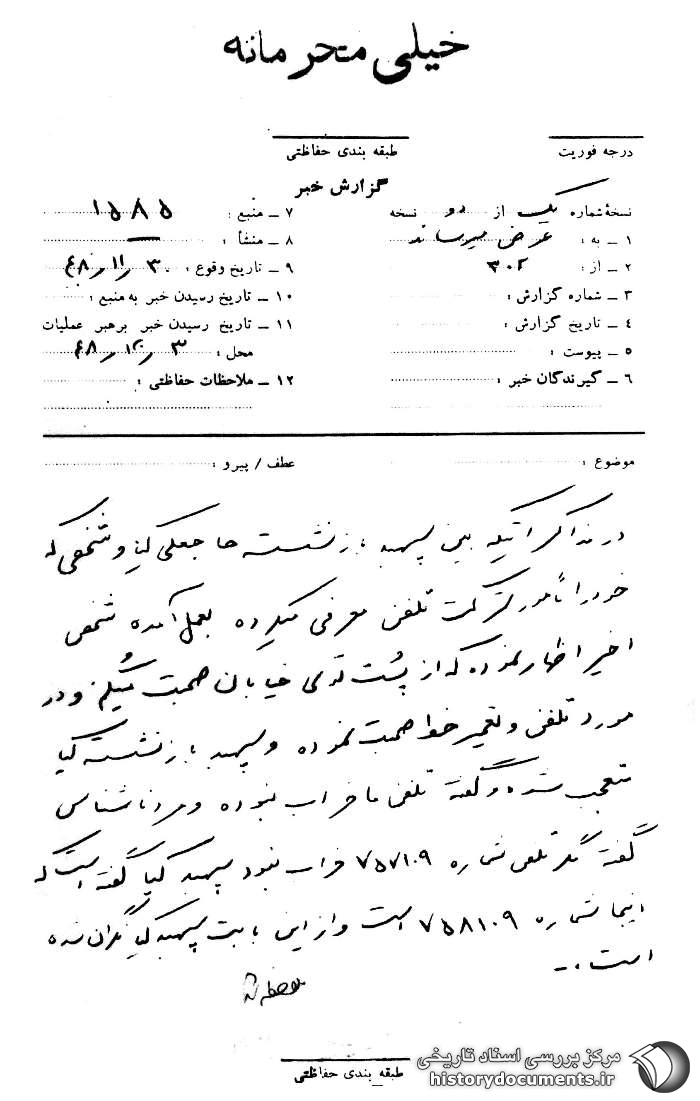 خیلی محرمانه
درجه فوریت
طبقه بندی حفاظتی
گزارش خبر
نسخهٔ شماره یک از دو نسخه
۱ ــ به : عرض میرساند
۲ ــ از : ۳۰۲
۳ ــ شماره گزارش :
۴ ــ تاریخ گزارش :
۵ ــ پیوست :
۶ ــ گیرندگان خبر :
۷ ــ منبع : ۱۵۸۵
۸ ــ منشأ : ــ
۹ ــ تاریخ وقوع : ۳۰ر۱۱ر۴۸
۱۰ ــ تاریخ رسیدن خبر به منبع :
۱۱ ــ تاریخ رسیدن خبر برهبر عملیات
محل : ۳ر۱۲ر۴۸
۱۲ ــ ملاحظات حفاظتی :
موضوع :
عطف / پیرو :
در مذاکراتیکه بین سپهبد بازنشسته حاجعلی کیا و شخصی که
خود را مأمور شرکت تلفن معرفی میکرده بعمل آمده شخص
اخیر اظهار نموده که از پُست توی خیابان صحبت میکنم و در
مورد تلفن و تعمیر خط صحبت نموده و سپهبد بازنشسته کیا
متعجب شده و گفته تلفن ما خراب نبوده و مرد ناشناس
گفته مگر تلفن شماره ۷۵۷۱۰۹ خراب نبود سپهبد کیا گفته است که
اینجا شماره ۷۵۸۱۰۹ است و از این بابت سپهبد کیا نگران شده
است .ــ
طبقه بندی حفاظتی
مرکز بررسی اسناد تاریخی
historydocuments.ir